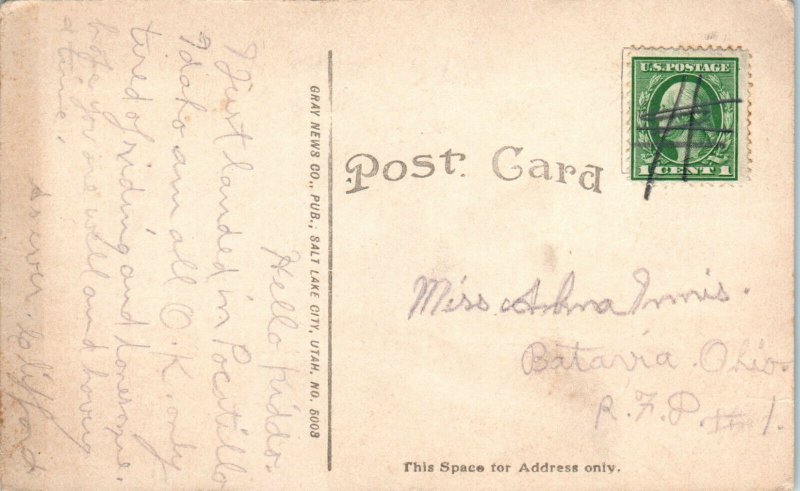 Hello Kiddo.
I Just landed in Pocatillo
Idaho am all O.K. only
tired of riding and lonesome.
hope you are well and having
a time.
Clifford
GRAY NEWS CO., PUB., SALT LAKE CITY, UTAH. NO. 5008
Post Card
U.S. POSTAGE
1 CENT 1
Miss Innis.
Batavia. Ohio.
R.F.D. #1.
This Space for Address only.